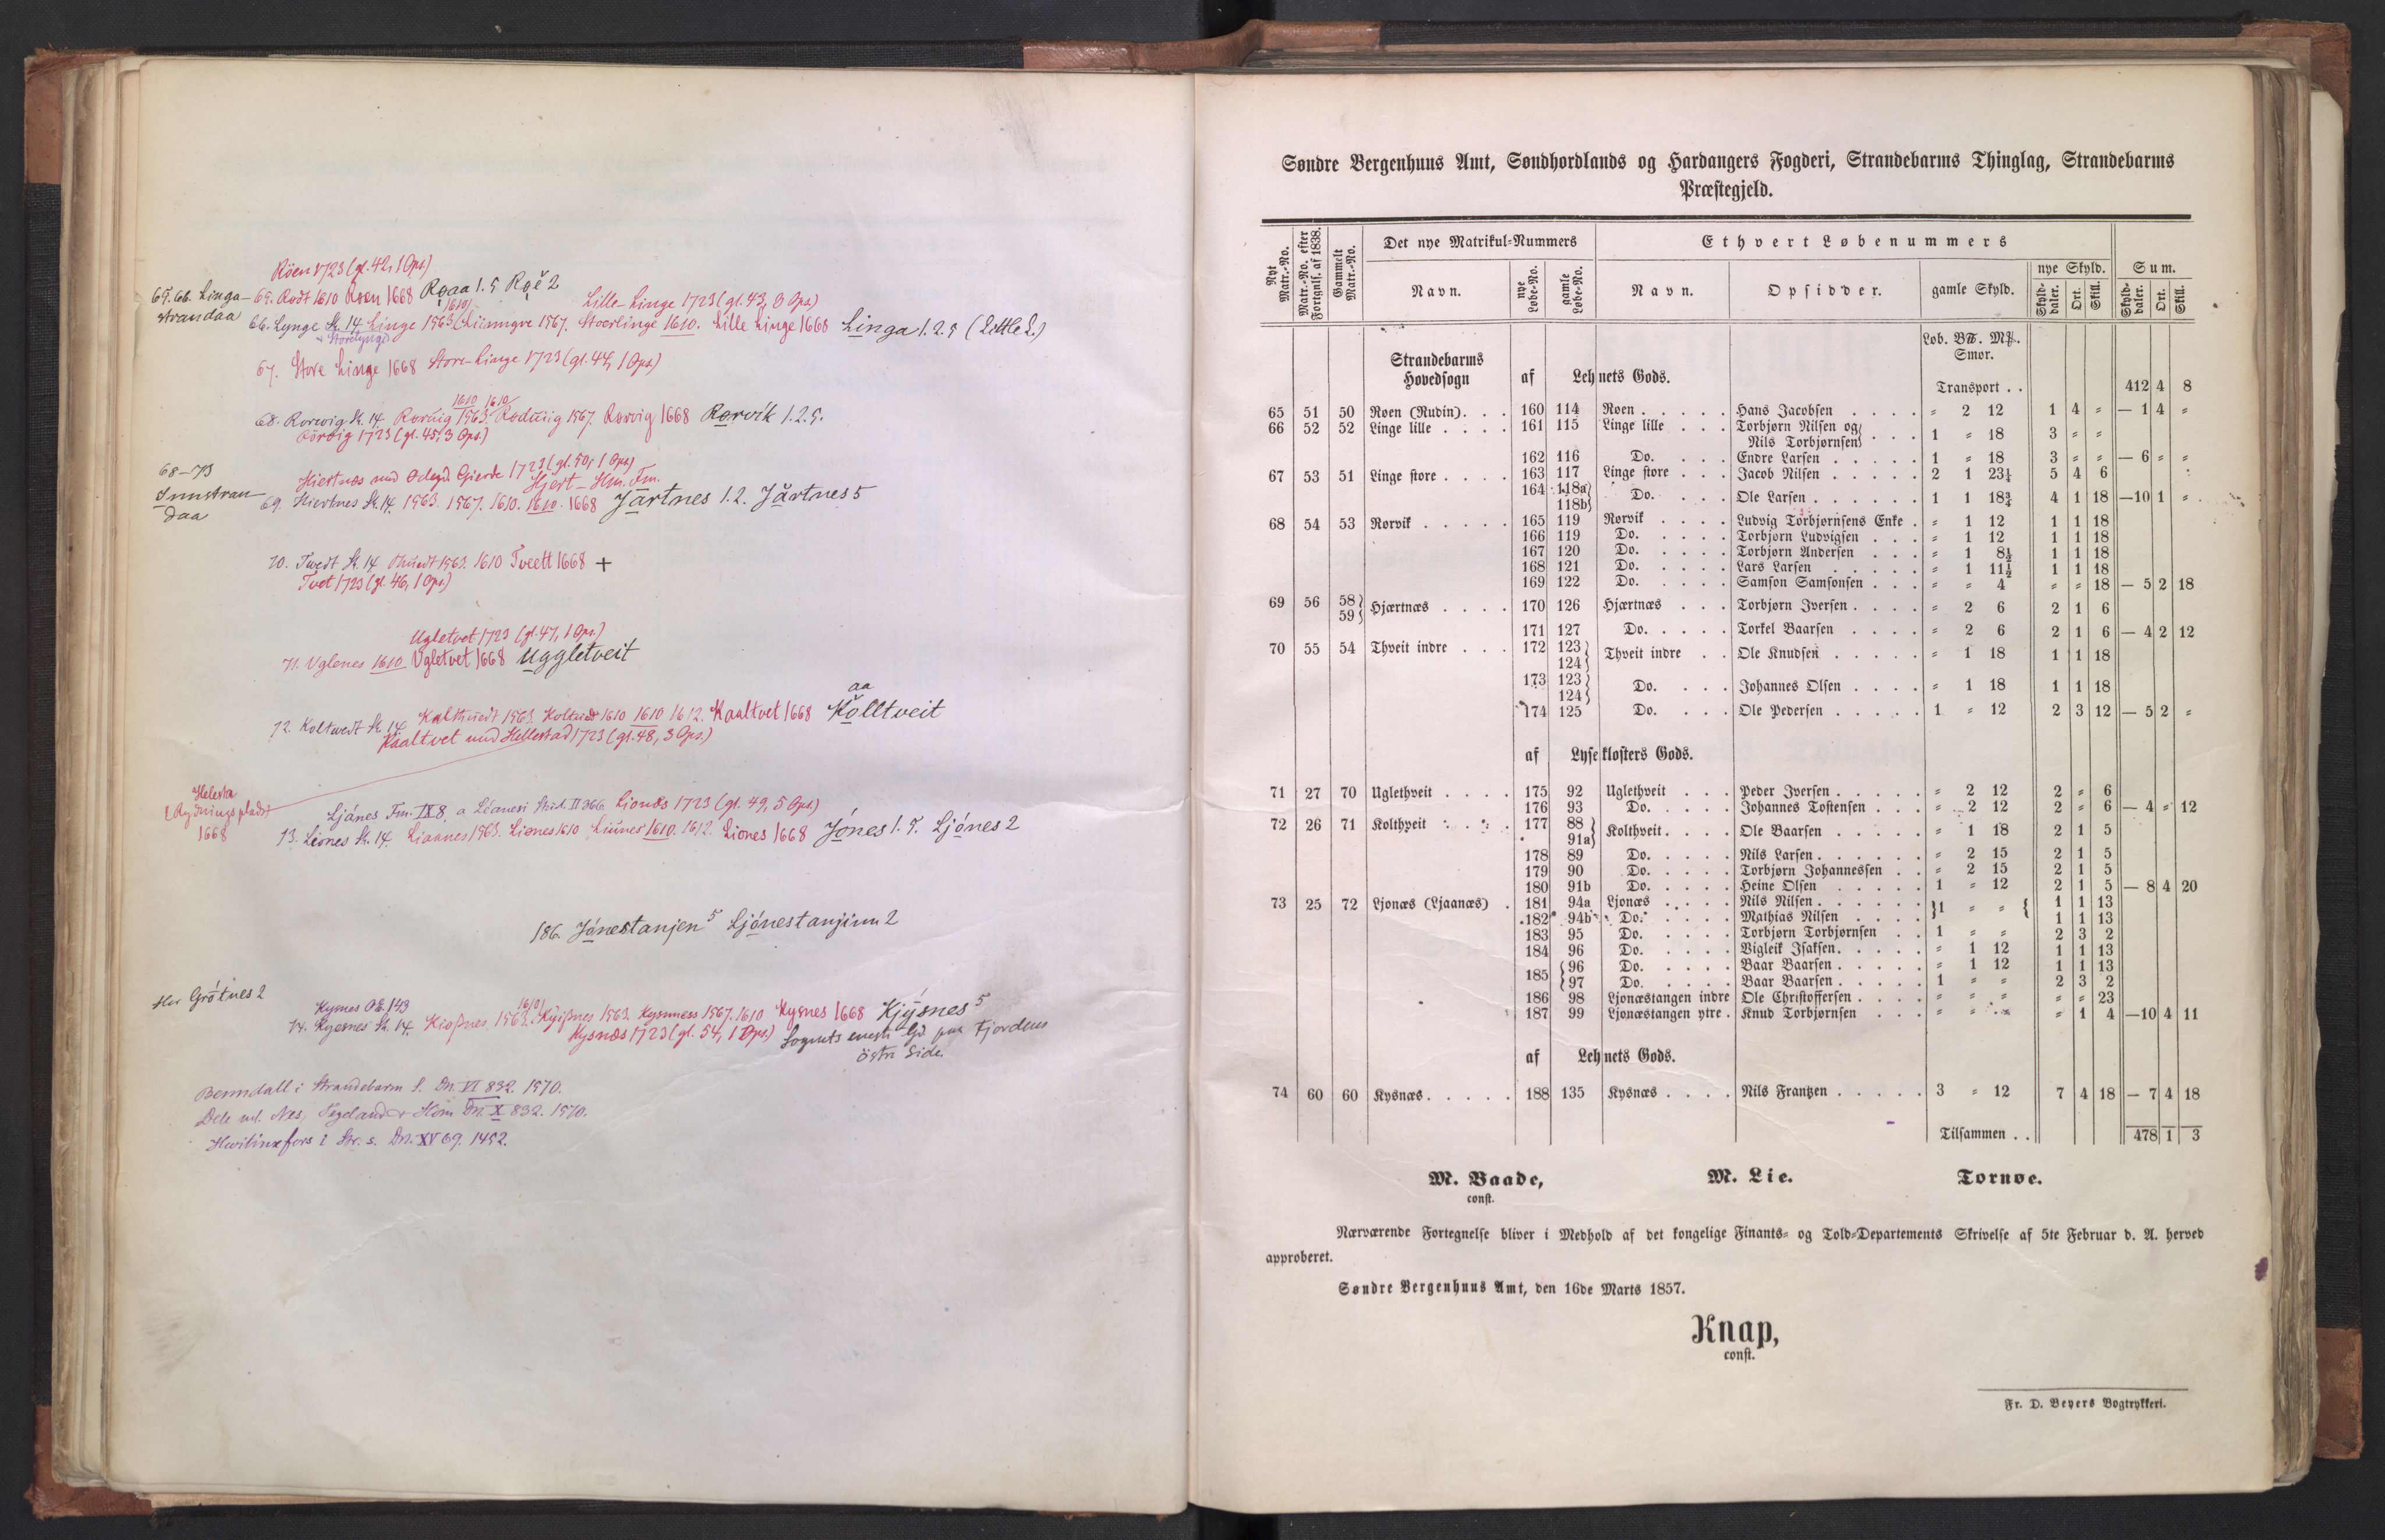 Röen 1723 (gl. 42, 1 Ops.)
65.66. Linga-
strandaa
65. Rodt 1610 Roen 1668 Roaa 1.5 Roě 2
Lille-Linge 1723 (gl. 43, 3 Ops)
1610
66. Lynge St. 14. Linge 1563 Liunngre 1567. Stoerlinge 1610. Lille Linge 1668 Linga 1.2.5 (Lettle L.)
+ Storelynge
67. Store Linge 1668 Store-Linge 1723 (gl. 44, 1 Ops.)
1610 1610
68. Rorwig St. 14. Roruig 1563. Roduiig 1567. Rorvig 1668 Rorvik 1.2.5.
Rörvig 1723 (gl. 45, 3 Ops.)
68-73
Innstran
daa
Hiertnæs med Ödegd. Gierde 1723 (gl. 50, 1 Ops)
Hjert- Hm. Fm.
69. Hiertnes St. 14. 1563. 1567. 1610. 1610. 1668 Jartnes 1.2. Jărtnes 5
70. Twedt St. 14. Thuedt 1563. 1610 Tveett 1668 +
Tvet 1723 (gl. 46, 1 Ops.)
Ugletvet 1723 (gl. 47, 1 Ops.)
71. Uglenes 1610 Ugletvet 1668 Uggletveit
aa
72. Koltwedt St. 14. Kalthuedt 1563. Koltued 1610 1610 1612. Kaaltvet 1668 Kolltveit
Kaaltvet med Hellestad 1723 (gl. 48, 3 Ops.)
Helesta
(Rydningsplads)
1668
Ljánes Fm. IX 8, a Léanesi Stud. II 366 Lionæs 1723 (gl. 49, 5 Ops)
73. Leones St. 14. Liaanes 1563. Liones 1610 Liunes 1610. 1612. Liones 1668 Jónes 1.5. Ljónes 2
186. Jónestanjen 5 Ljónestanjinn 2
Her Grótnes 2
Kymes OE. 143
1610
74. Kyesnes St. 14. Kioßnes 1563. Kyißnes 1563. Kysnness 1567. 1610 Kysnes 1668 Kjýsnes 5
Kysnæs 1723 (gl. 54, 1 Ops) Sognets eneste Gd. paa Fjordens
östre Side.
Benndall i Strandebarm S. Dn. VI 832. 1570.
Dele ml. Nes, Tegeland o Hom Dn. X 832. 1570.
Hwitinxfors i Str. s. Dn. XV 69. 1452.
Søndre Bergenhuus Amt, Søndhordlands og Hardangers Fogderi, Strandebarms Thinglag, Strandebarms
Præstegjeld.
Nyt Matr.-No. | Matr.-No. efter Fortgnif. af 1838. | Gammelt Matr.-No. | Det nye Matrikul-Nummers | Ethvert Løbenummers
Navn. | nye Løbe-No. | gamle Løbe-No. | Navn. | Opsidder. | gamle Skyld. | nye Skyld. | Sum.
Skylddaler. Ort. Skill. | Skylddaler. Ort. Skill.
Løb. B℔. M℔.
Smør.
Strandebarms
Hovedsogn af Lehnets Gods.
Transport . . 412 4 8
65 51 50 Røen (Rudin). . . 160 114 Røen . . . . . Hans Jacobsen . . . . = 2 12 1 4 = — 1 4 =
66 52 52 Linge lille . . . . 161 115 Linge lille . . . Torbjørn Nilsen og
Nils Torbjørnsen} . . . 1 = 18 3 = =
162 116 Do. . . . Endre Larsen . . . . . 1 = 18 3 = = — 6 = =
67 53 51 Linge store . . . . 163 117 Linge store . . . Jacob Nilsen . . . . . 2 1 23¼ 5 4 6
164 118a
118b} Do. . . . Ole Larsen . . . . . . 1 1 18¾ 4 1 18 —10 1 =
68 54 53 Rørvik . . . . . 165 119 Rørvik . . . . Ludvig Torbjørnsens Enke . = 1 12 1 1 18
166 119 Do. . . . . Torbjørn Ludvigsen . . . = 1 12 1 1 18
167 120 Do. . . . . Torbjørn Andersen . . . = 1 8½ 1 1 18
168 121 Do. . . . . Lars Larsen . . . . . = 1 11½ 1 1 18
169 122 Do. . . . . Samson Samsonsen . . . = = 4 = = 18 — 5 2 18
69 56 58
59} Hjærtnæs . . . . 170 126 Hjærtnæs . . . Torbjørn Iversen . . . . = 2 6 2 1 6
171 127 Do. . . . . Torkel Baarsen . . . . = 2 6 2 1 6 — 4 2 12
70 55 54 Thveit indre . . . 172 123
124} Thveit indre . . Ole Knudsen . . . . . = 1 18 1 1 18
173 123
124} Do. . . . Johannes Olsen . . . . = 1 18 1 1 18
174 125 Do. . . . Ole Pedersen . . . . . 1 = 12 2 3 12 — 5 2 =
af Lyseklosters Gods.
71 27 70 Uglethveit . . . . 175 92 Uglethveit . . . Peder Iversen . . . . . = 2 12 2 = 6
176 93 Do. . . . . Johannes Tostensen . . . = 2 12 2 = 6 — 4 = 12
72 26 71 Kolthveit . . . . 177 88
91a} Kolthveit . . . . Ole Baarsen . . . . . = 1 18 2 1 5
178 89 Do. . . . . Nils Larsen . . . . . . = 2 15 2 1 5
179 90 Do. . . . . Torbjørn Johannessen . . = 2 15 2 1 5
180 91b Do. . . . . Heine Olsen . . . . . 1 = 12 2 1 5 — 8 4 20
73 25 72 Ljonæs (Ljaanæs) . 181 94a Ljonæs . . . . Nils Nilsen . . . . . }1 = = { 1 1 13
182 94b Do. . . . . Mathias Nilsen . . . . 1 1 13
183 95 Do. . . . . Torbjørn Torbjørnsen . . 1 = = 2 3 2
184 96 Do. . . . . Vigleik Isaksen . . . . . = 1 12 1 1 13
185 {96 Do. . . . . Baar Baarsen . . . . . = 1 12 1 1 13
97 Do. . . . . Baar Baarsen . . . . . 1 = = 2 3 2
186 98 Ljonæstangen indre Ole Christoffersen . . . . = = = = = 23
187 99 Ljonæstangen ytre . Knud Torbjørnsen . . . = = = = 1 4 —10 4 11
af Lehnets Gods.
74 60 60 Kysnæs . . . . . 188 135 Kysnæs . . . . Nils Frantzen . . . . . 3 = 12 7 4 18 — 7 4 18
Tilsammen . . 478 1 3
M. Baade, M. Lie. Tornøe.
const.
Nærværende Fortegnelse bliver i Medhold af det kongelige Finants- og Told-Departements Skrivelse af 5te Februar d. A. herved
approberet.
Søndre Bergenhuus Amt, den 16de Marts 1857.
Knap,
const.
Fr. D. Beyers Bogtrykkeri.